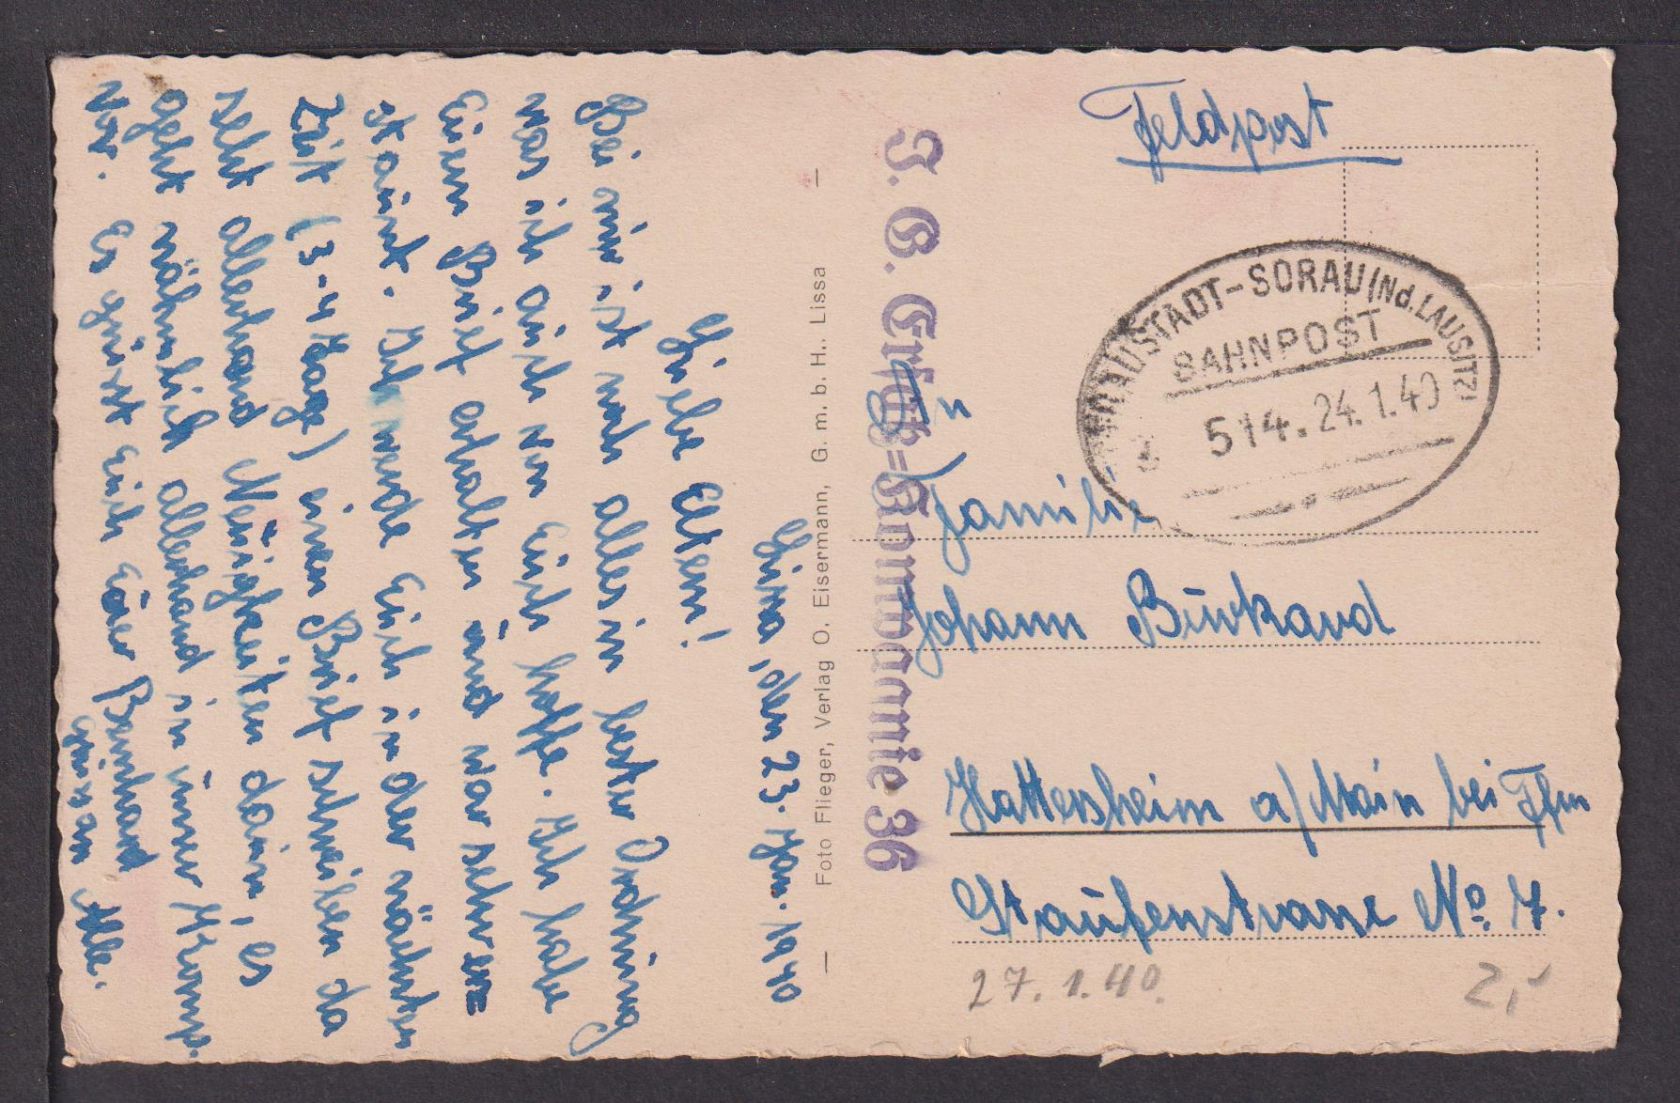 Lissa, den 23. Jan. 1940
Liebe Eltern!
Bei mir ist noch alles in bester Ordnung
was ich auch von Euch hoffe. Ich habe
Euern Brief erhalten und war sehr er=
staunt. Ich werde Euch in der nächsten
Zeit (3-4 Tage) einen Brief schreiben da
steht allerhand Neuigkeiten darin, es
geht nähmlich allerhand in unser Komp.
vor. Es grüsst Euch Euer Bernhard
grüsse an Alle.
— Foto Flieger, Verlag O. Eisermann, G. m. b. H., Lissa —
J. E. Ersatz=Kompanie 36
Feldpost
FRAUSTADT-SORAU (Nd. LAUSITZ)
BAHNPOST
514. 24.1.40
An
Familie
Johann Burkard
Hattersheim a/Main bei Ffm
Staufenstrasse No 7.
27.1.40.
2,-